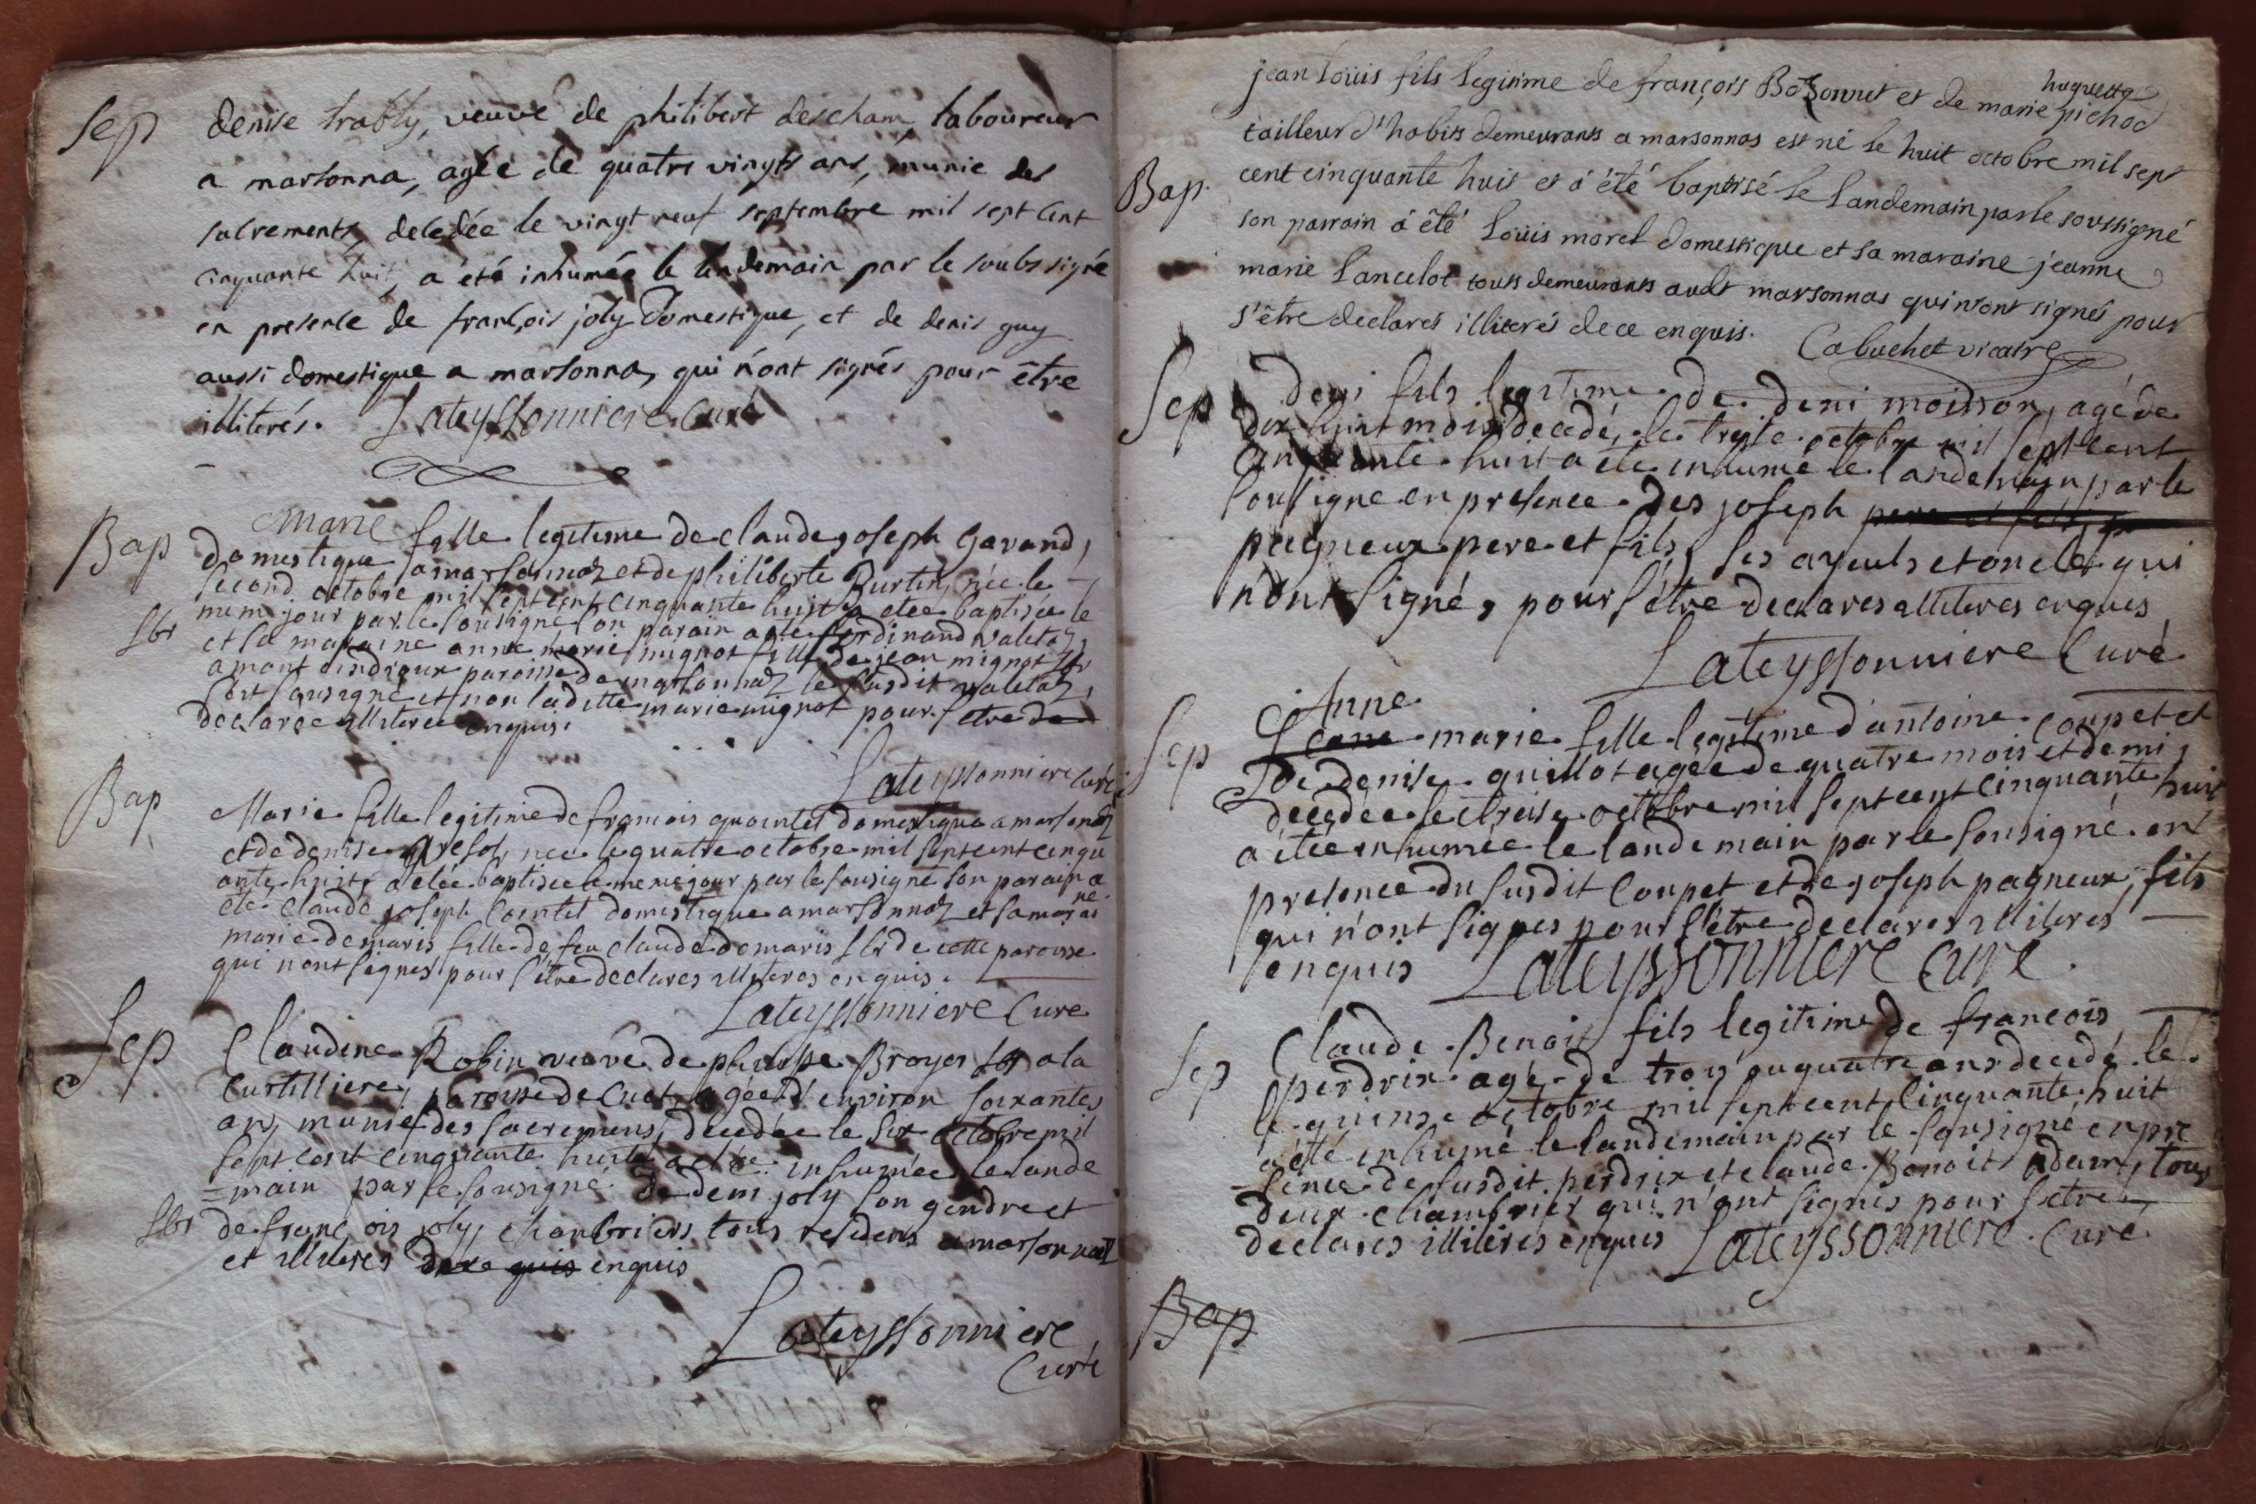 Sep denise trably, veuve de philibert descham, laboureur
a marsonna, agée de quatre vingts ans, munie des
sacrements, decedée le vingt neuf septembre mil sept cent
cinquante huit, a été inhumée le lendemain par le soubssigné
en presence de françois joly domestique, et de denis guy
aussi domestique a marsonna, qui n'ont signés pour être
illiterés. Lateyssonniere Curé
Bap Marie fille legitime de claude joseph Gavand,
domestique a marsonnaz et de philiberte Burtin, née le
second octobre mil sept cent cinquante huit, a etée baptisée le
mem jour par le sousigné son parain a été ferdinand valetaz,
et sa maraine anne marie mignot fille de jean mignot lbr
lbr
a mont dindroux paroisse de marsonnaz le susdit valetaz,
sest sousigné et non laditte marie mignot pour setre de
declarée illiteree enquis.
Lateyssonniere Curé
Bap Marie fille legitime de francois quointet domestique a marsonaz
et de denise gresot, nee le quatre octobre mil sept cent cinqu
ante huit, a etée baptisée le meme jour par le sousigné son parain a
été claude joseph Cointet domestique a marsonnaz et sa marai
ne
marie demaris fille de feu claude demaris lbr de cette paroisse
qui n'ont signés pour s'être declares illiteres enquis.
Lateyssonniere Cure
Sep Claudine Robin veuve de philippe Broyer lbr a la
Curtilliere, paroisse de Cuet agée d'environ soixantes
ans, munie des sacremens, decedée le six octobre mil
sept cent cinquante huit a etée inhumée le lande
=main par le sousigné de deni joly son gendre et
lbr de francois joly, chambriers tous residens a marsonnaz
et illiteres de ce quis enquis
Lateyssonniere
Curé
jean Loüis fils legitime de françois Bozonnet et de marie pichod
huguette
tailleur d'habits demeurants a marsonnas est né le huit octobre mil sept
Bap. cent cinquante huit et a été baptisé le landemain par le soussigné
son parrain a été Loüis morel domestique et sa maraine jeanne
marie Lancelot touts demeurants audt marsonnas qui n'ont signés pour
s'être declarés illiterés de ce enquis. Cabuchet vicaire
Sep Deni fils legitime de deni moisson, agé de
dix huit mois decedé, le treise octobre mil sept cent
cinquante huit a été inhumé le landemain par le
sousigne en presence des joseph pere et fils,
pagneux pere et fils, ses ayeuls et oncle qui
n'ont signé, pour s'être declares illiteres enquis
Lateyssonniere Curé
Anne
Sep Jeane marie fille legitime d'antoine coupet et
de denise guillot agée de quatre mois et demi,
decedée le treise octobre mil sept cent cinquante huit
a étée inhumée le landemain par le sousigné en
presence du susdit Coupet et de joseph pagneux, fils
qui n'ont signes pour s'être declares illiteres
enquis Lateyssonniere Curé.
Sep Claude Benoit fils legitime de francois
perdrix agé de trois ou quatre ans decedé le
le quinse octobre mil sept cent cinquante huit
a été inhumé le landemain par le sousigné en pre
sence de susdit perdrix et claude Benoit adam, tous
deux chambrier qui n'ont signes pour setre
declares illiteres enquis Lateyssonniere. Curé
Bap